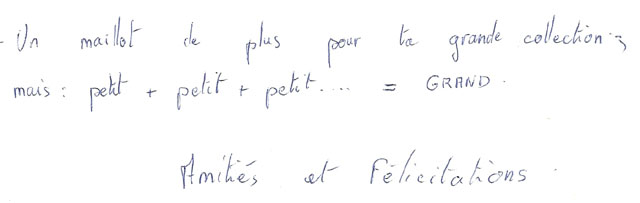 - Un maillot de plus pour ta grande collection ;
mais : petit + petit + petit.... = GRAND.
Amitiés et Félicitations.